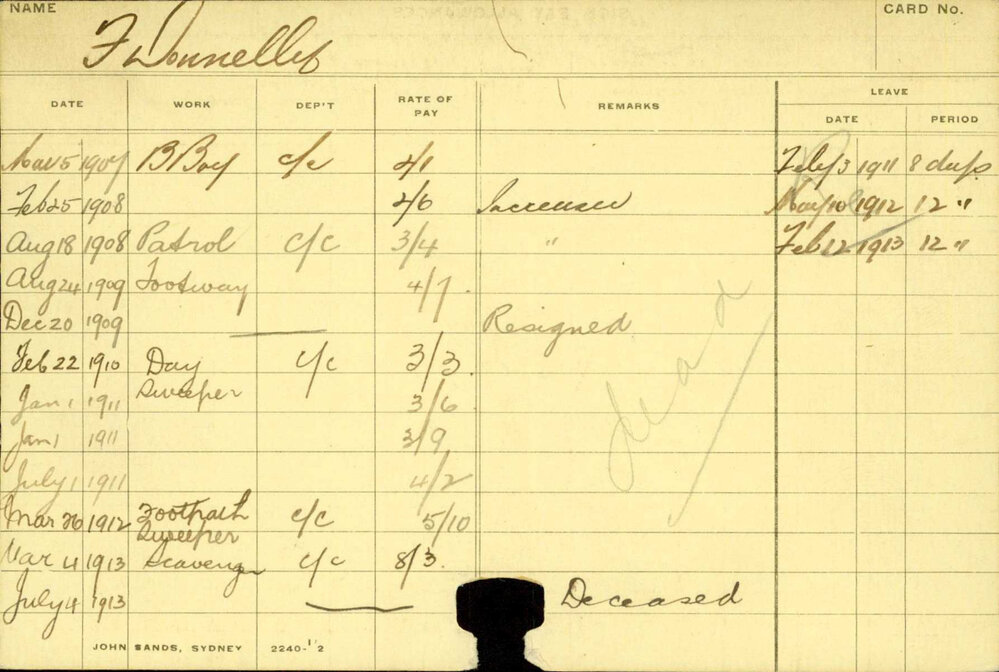 NAME CARD No.
F Donnelly
DATE WORK DEP'T RATE OF PAY REMARKS LEAVE
DATE PERIOD
Mar 5 1907 B Boy c/c 2/1 Feby 3 1911 8 days
Feb 25 1908 2/6 Increased May 10 1912 12 "
Aug 18 1908 Patrol c/c 3/4 " Feb 12 1913 12 "
Aug 24 1909 Footway 4/7
Dec 20 1909 Resigned
Feb 22 1910 Day c/c 3/3
Sweeper
Jan 1 1911 3/6
Jan 1 1911 3/9
July 1 1911 4/2
Mar 26 1912 Footpath c/c 5/10
Sweeper
Mar 4 1913 Scavenger c/c 8/3
July 4 1913 Deceased
dead
JOHN SANDS, SYDNEY 2240-1'2